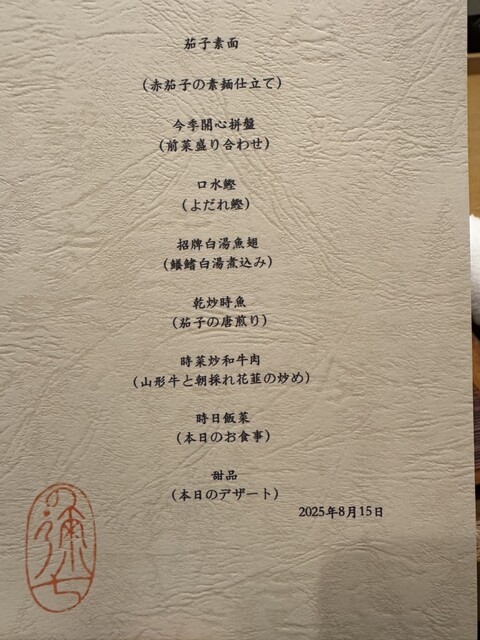 茄子素面
(赤茄子の素麺仕立て)
今季開心拼盤
(前菜盛り合わせ)
口水鰹
(よだれ鰹)
招牌白湯魚翅
(鱶鰭白湯煮込み)
乾炒時魚
(茄子の唐煎り)
時菜炒和牛肉
(山形牛と朝採れ花韮の炒め)
時日飯菜
(本日のお食事)
甜品
(本日のデザート)
2025年8月15日